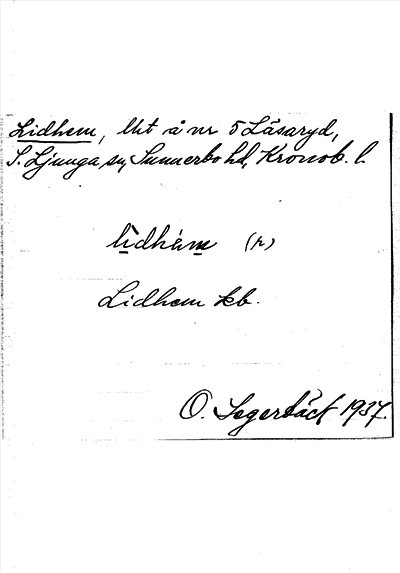 Lidhem, lht å nr 5 Läsaryd,
S. Ljunga sn, Sunnerbo hd, Kronob. l.
lìdhèm (r)
Lidhem kb.
O. Segerbäck 1937.